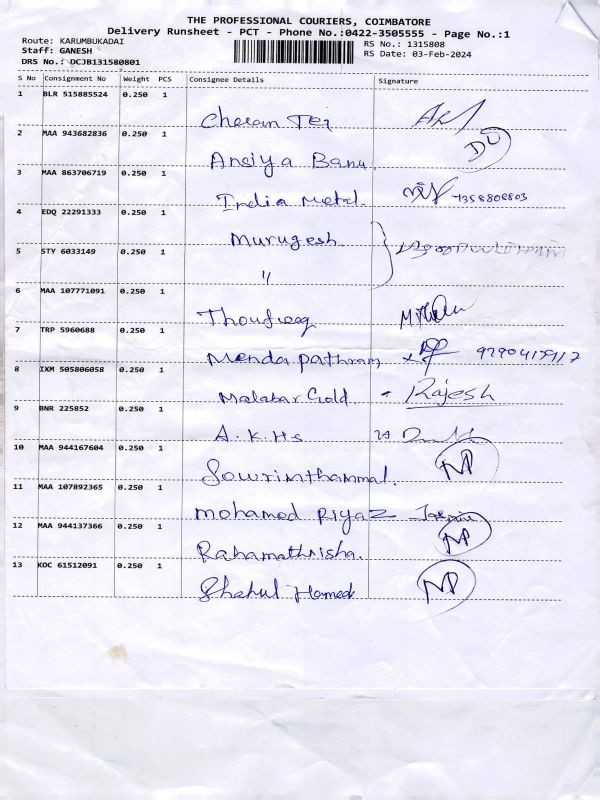 THE PROFESSIONAL COURIERS, COIMBATORE
Delivery Runsheet - PCT - Phone No.:0422-3505555 - Page No.:1
Route: KARUMBUKADAI
RS No.: 1315808
Staff: GANESH
RS Date: 03-Feb-2024
DRS No.: DCJB131580801
S No Consignment No Weight PCS Consignee Details Signature
1 BLR 515885524 0.250 1 Cheran Tex
2 MAA 943682836 0.250 1 Ansiya Banu DL
3 MAA 863706719 0.250 1 India Metal
4 EDQ 22291333 0.250 1 Murugesh
5 STY 6033149 0.250 1 "
6 MAA 107771091 0.250 1 Thoufeeq
7 TRP 5960688 0.250 1
8 IXM 505806058 0.250 1 Malabar Gold Rajesh
9 BNR 225852 0.250 1 A.K.Hs
10 MAA 944167604 0.250 1 Sowrinthammal. NP
11 MAA 107892365 0.250 1 Mohamed Riyaz
12 MAA 944137366 0.250 1 Rahamathnisha. NP
13 KOC 61512091 0.250 1 Shahul Hamed NP